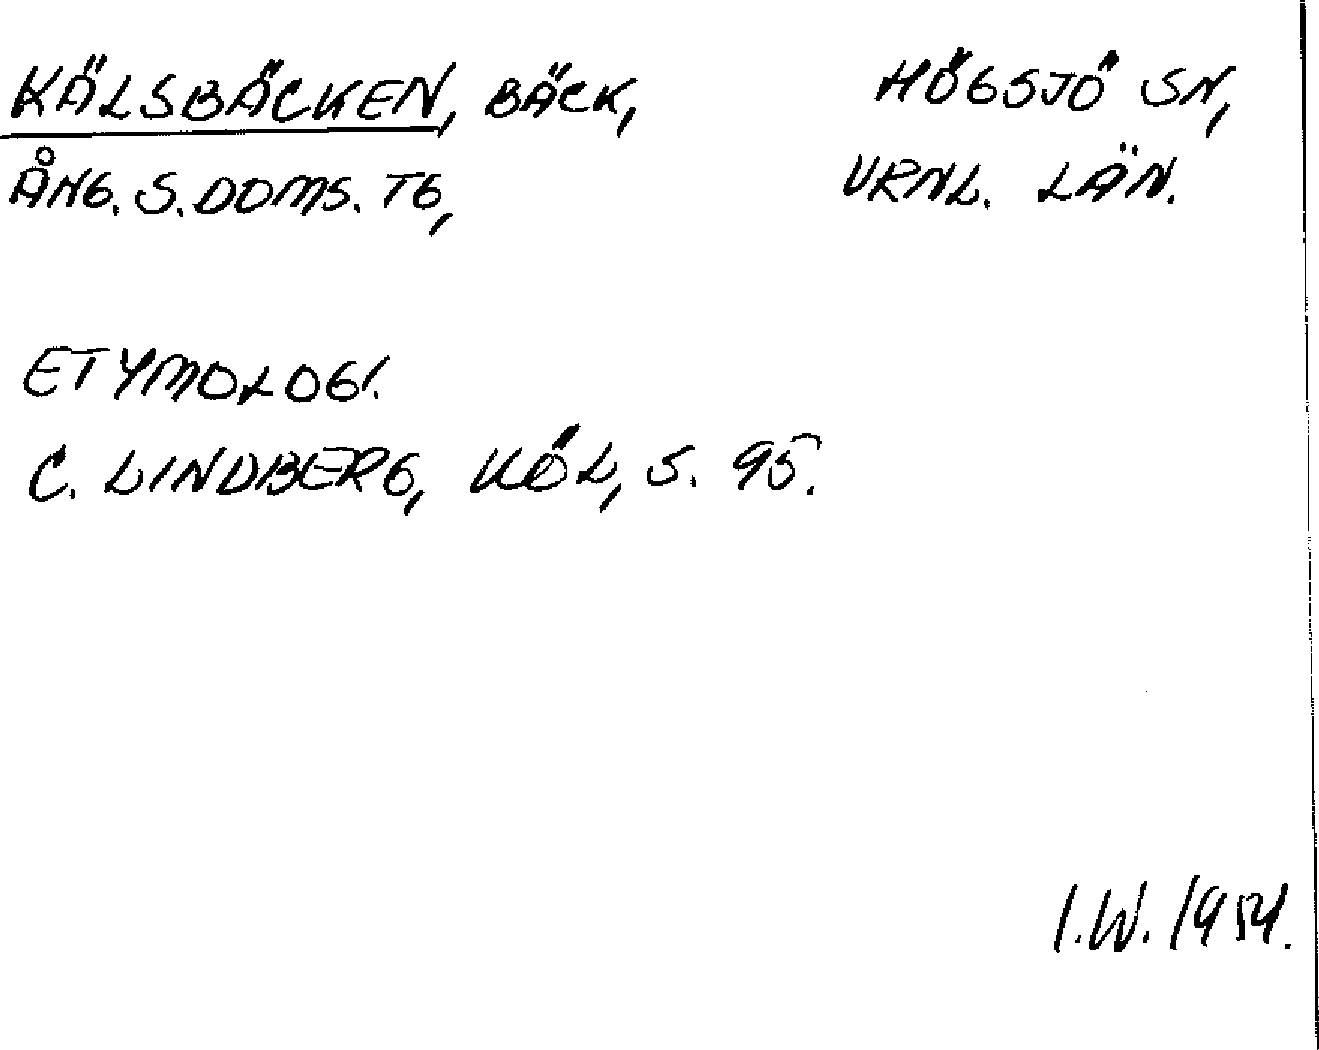 KÄLSBÄCKEN, BÄCK, HÖGSJÖ SN,
ÅNG. S. DOMS. TG, VRNL. LÄN.
ETYMOLOGI.
C. LINDBERG, KÖL, S. 95.
I.W. 1954.